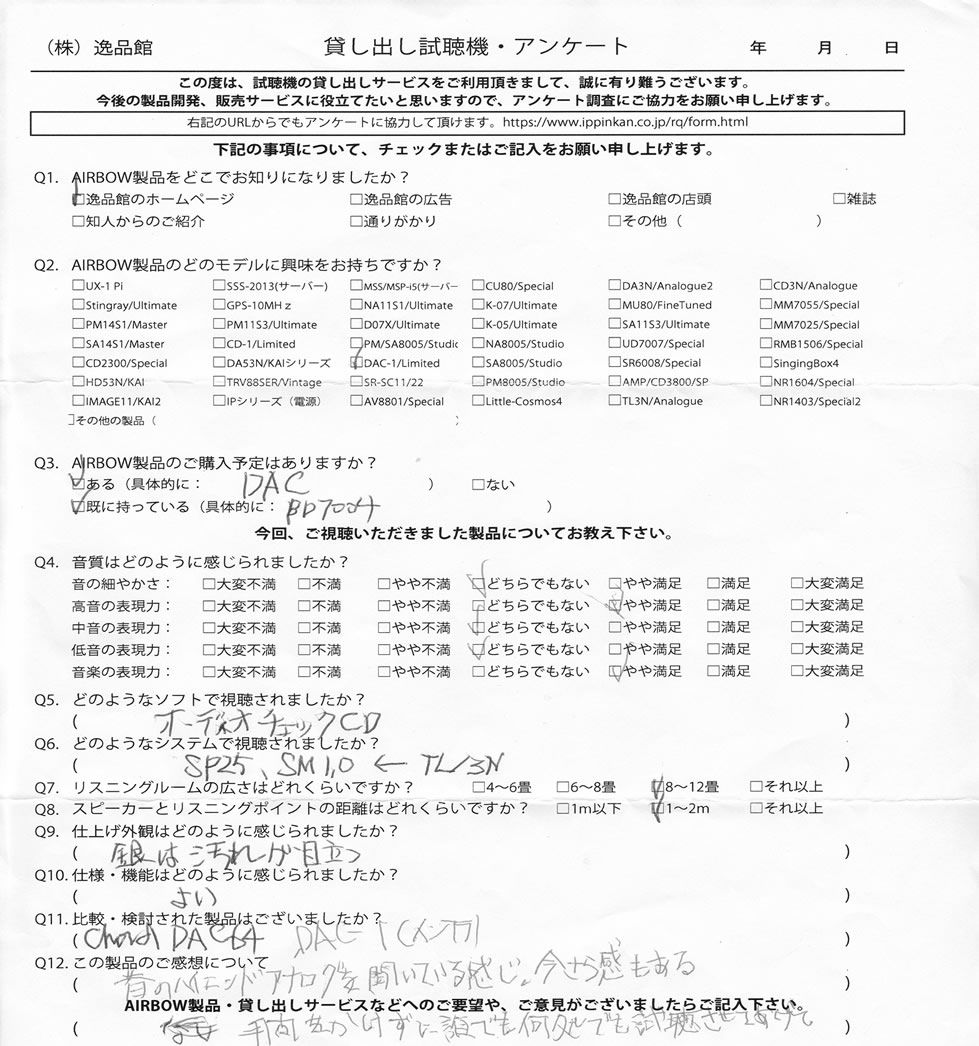 (株)逸品館 貸し出し試聴機・アンケート 年 月 日
この度は、試聴機の貸し出しサービスをご利用頂きまして、誠に有り難うございます。
今後の製品開発、販売サービスに役立てたいと思いますので、アンケート調査にご協力をお願い申し上げます。
右記のURLからでもアンケートに協力して頂けます。https://www.ippinkan.co.jp/rq/form.html
下記の事項について、チェックまたはご記入をお願い申し上げます。
Q1. AIRBOW製品をどこでお知りになりましたか?
☑逸品館のホームページ □逸品館の広告 □逸品館の店頭 □雑誌
□知人からのご紹介 □通りがかり □その他 ( )
Q2. AIRBOW製品のどのモデルに興味をお持ちですか?
□UX-1 Pi □SSS-2013(サーバー) □MSS/MSP-i5(サーバー □CU80/Special □DA3N/Analogue2 □CD3N/Analogue
□Stingray/Ultimate □GPS-10MHz □NA11S1/Ultimate □K-07/Ultimate □MU80/FineTuned □MM7055/Special
□PM14S1/Master □PM11S3/Ultimate □D07X/Ultimate □K-05/Ultimate □SA11S3/Ultimate □MM7025/Special
□SA14S1/Master □CD-1/Limited □PM/SA8005/Studio □NA8005/Studio □UD7007/Special □RMB1506/Special
□CD2300/Special □DA53N/KAIシリーズ ☑DAC-1/Limited □SA8005/Studio □SR6008/Special □SingingBox4
□HD53N/KAI □TRV88SER/Vintage □SR-SC11/22 □PM8005/Studio □AMP/CD3800/SP □NR1604/Special
□IMAGE11/KAI2 □IPシリーズ(電源) □AV8801/Special □Little-Cosmos4 □TL3N/Analogue □NR1403/Special2
□その他の製品 ( )
Q3. AIRBOW製品のご購入予定はありますか?
☑ある (具体的に: DAC ) □ない
☑既に持っている (具体的に: BD7004 )
今回、ご視聴いただきました製品についてお教え下さい。
Q4. 音質はどのように感じられましたか?
音の細やかさ: □大変不満 □不満 □やや不満 ☑どちらでもない □やや満足 □満足 □大変満足
高音の表現力: □大変不満 □不満 □やや不満 □どちらでもない ☑やや満足 □満足 □大変満足
中音の表現力: □大変不満 □不満 □やや不満 ☑どちらでもない □やや満足 □満足 □大変満足
低音の表現力: □大変不満 □不満 □やや不満 ☑どちらでもない □やや満足 □満足 □大変満足
音楽の表現力: □大変不満 □不満 □やや不満 □どちらでもない ☑やや満足 □満足 □大変満足
Q5. どのようなソフトで視聴されましたか?
( オーディオチェックCD )
Q6. どのようなシステムで視聴されましたか?
( SP25、SM1,0 ← TL/3N )
Q7. リスニングルームの広さはどれくらいですか? □4~6畳 □6~8畳 ☑8~12畳 □それ以上
Q8. スピーカーとリスニングポイントの距離はどれくらいですか? □1m以下 ☑1~2m □それ以上
Q9. 仕上げ外観はどのように感じられましたか?
( 銀は汚れが目立つ )
Q10. 仕様・機能はどのように感じられましたか?
( よい )
Q11. 比較・検討された製品はございましたか?
( Chord DAC64 DAC-1 )
Q12. この製品のご感想について
( 昔のハイエンドアナログを聞いている感じ。今さら感もある )
AIRBOW製品・貸し出しサービスなどへのご要望や、ご意見がございましたらご記入下さい。
( 手間をかけずに誰でも何処でも試聴させてあげて )